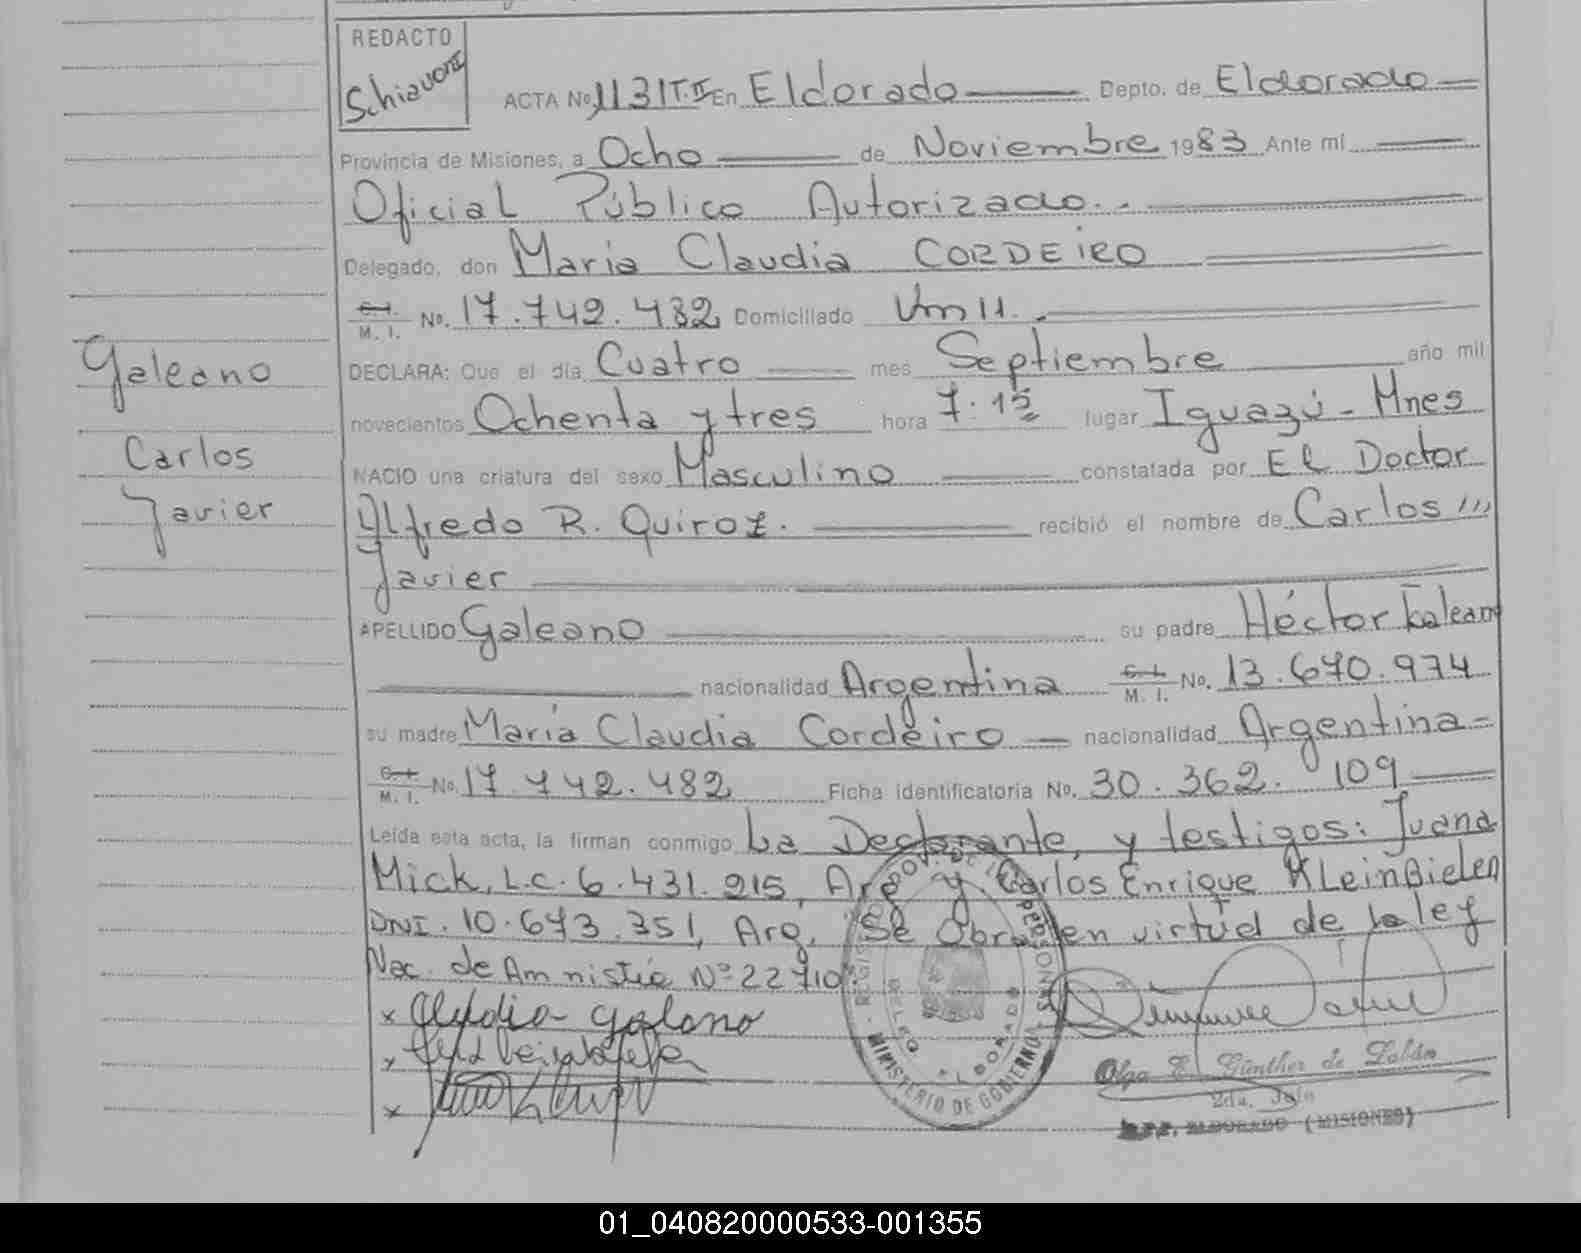 REDACTO
Schiavoni
ACTA No. 1131 T.II En Eldorado Depto. de Eldorado
Provincia de Misiones, a Ocho de Noviembre 1983 Ante mí
Oficial Público Autorizado.
Delegado, don Maria Claudia CORDEIRO
C.I. M. I. No. 17.742.482 Domiciliado Km 11.
DECLARA: Que el día Cuatro mes Septiembre año mil
novecientos Ochenta y tres hora 7:15 lugar Iguazú - Mnes
NACIO una criatura del sexo Masculino constatada por El Doctor
Alfredo R. Quiroz. recibió el nombre de Carlos
Javier
APELLIDO Galeano su padre Héctor Galeano
nacionalidad Argentina C.I. M. I. No. 13.670.974
su madre María Claudia Cordeiro nacionalidad Argentina
C.I. M. I. No. 17.742.482 Ficha identificatoria No. 30.362.109
Leída esta acta, la firman conmigo La Declarante, y testigos: Juana
Mick, L.C. 6.431.215, Arg. y Carlos Enrique Kleinbielen
DNI. 10.673.351, Arg. Se Obra en virtud de la ley
Nac. de Amnistía Nº 22710.
Galeano
Carlos
Javier
x Clydia galano
x
x
REGISTRO PERSONAS
ELDORADO
MINISTERIO DE GOBIERNO
Olga E. Günther de
2da. Jefe
ELDORADO (MISIONES)
01_040820000533-001355